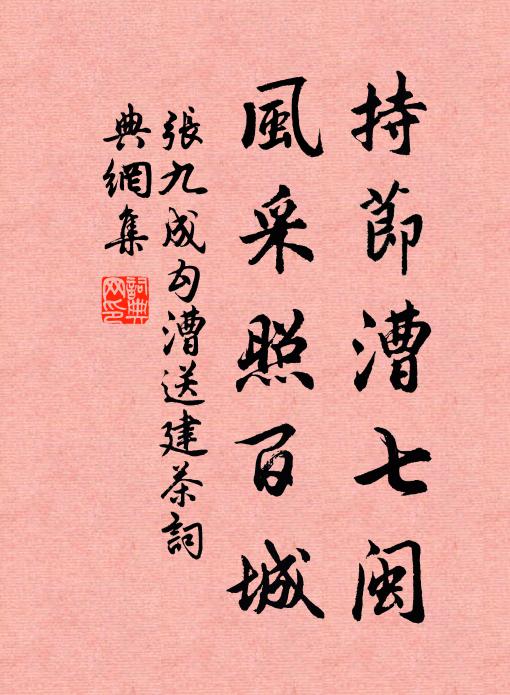 持節漕七閩
風采照百城
張九成勾漕送建茶詞
典網集
詞典
网印